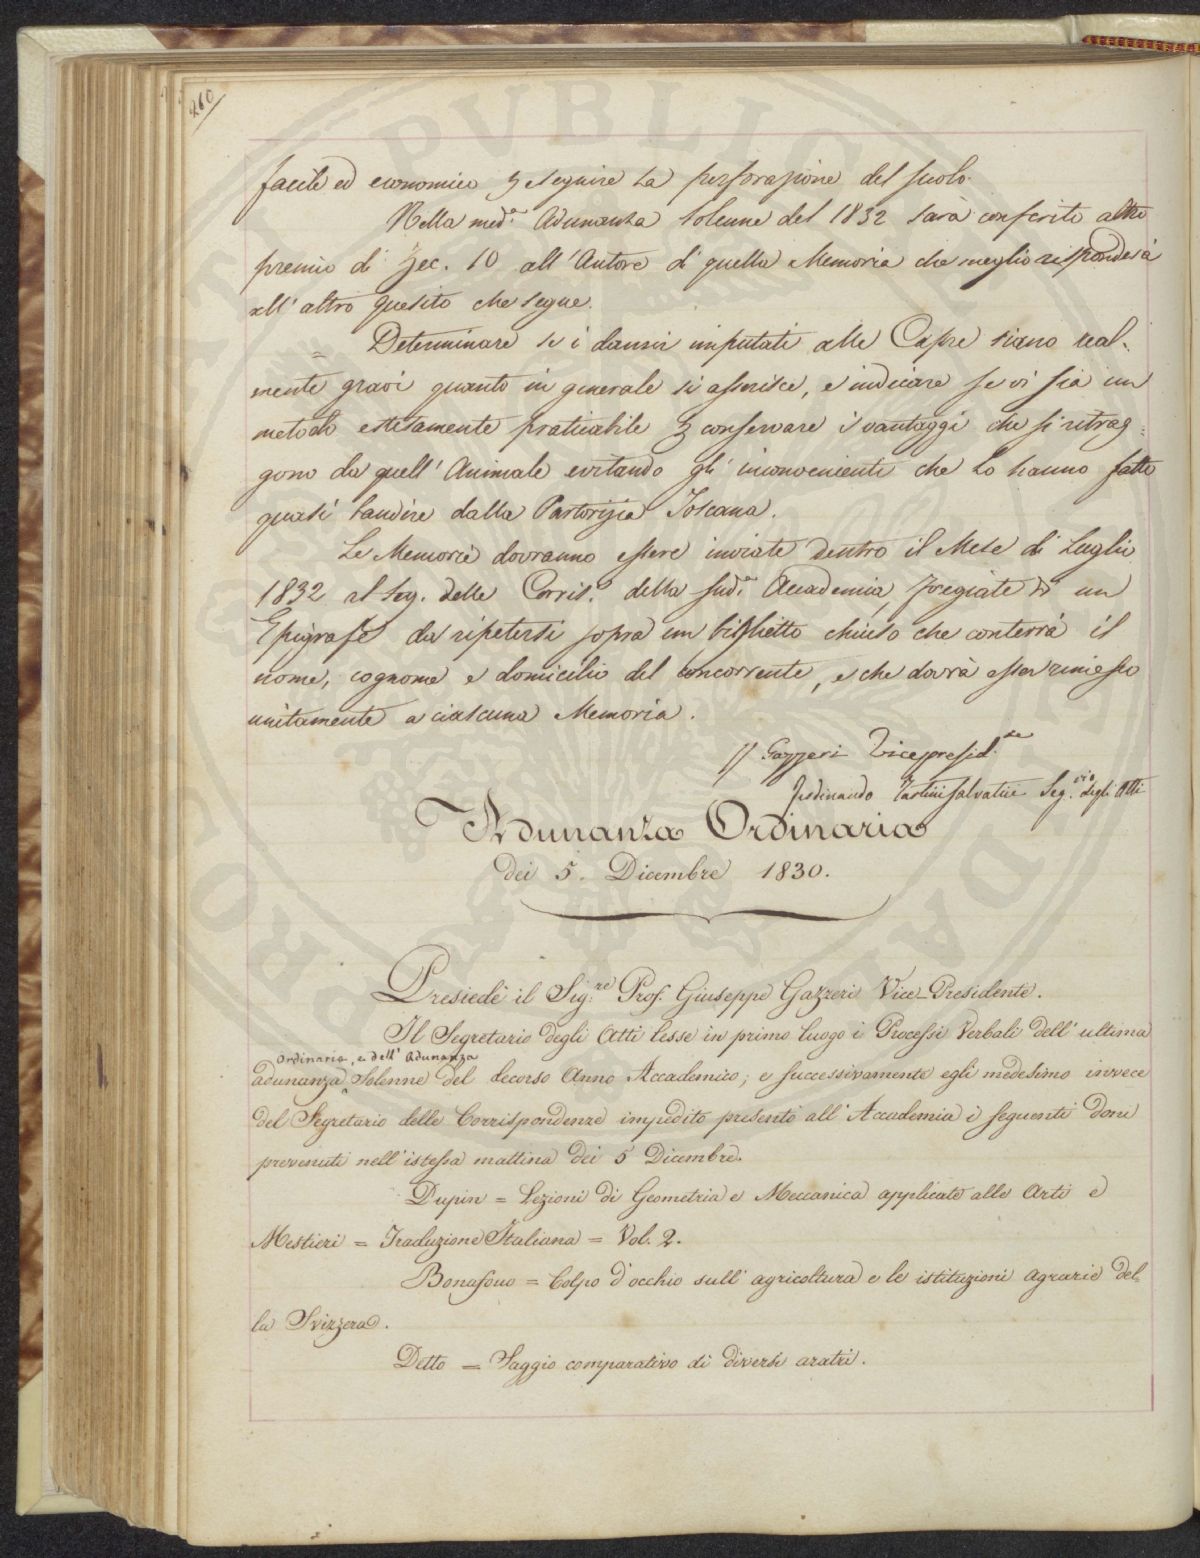 260
facile ed economico ꝑ eseguire la perforazione del suolo.
Nella med.ª Adunanza Solenne del 1832 sarà conferito altro
premio di Zec. 10 all'Autore di quella Memoria che meglio risponderà
all'altro quesito che segue.
= Determinare se i danni imputati alle Capre siano real-
mente gravi quanto in generale si asserisce, e indicare se vi sia un
metodo estesamente praticabile ꝑ conservare i vantaggi che si ritrag=
gono da quell'Animale evitando gl'inconvenienti che lo hanno fatto
quasi bandire dalla Pastorizia Toscana.
Le Memorie dovranno essere inviate dentro il Mese di Luglio
1832 al Seg. delle Corris.e della sud.ª Accademia, fregiate di un
Epigrafe da ripetersi sopra un biglietto chiuso che conterrà il
nome, cognome e domicilio del concorrente, e che dovrà esser rimesso
unitamente a ciascuna Memoria.
G Gazzeri Vicepresid.te
Ferdinando Tartini Salvatici Seg.rio degli Atti
Adunanza Ordinaria
dei 5. Dicembre 1830.
Presiedè il Sig.re Prof. Giuseppe Gazzeri Vice-Presidente.
Il Segretario degli Atti lesse in primo luogo i Processi Verbali dell'ultima
Ordinaria, e dell'Adunanza
adunanza Solenne del decorso Anno Accademico; e successivamente egli medesimo invece
del Segretario delle Corrispondenze impedito presentò all'Accademia i seguenti doni
prevenuti nell'istessa mattina dei 5 Dicembre.
Dupin = Lezioni di Geometria e Meccanica applicate alle Arti e
Mestieri = Traduzione Italiana = Vol. 2.
Bonafous = Colpo d'occhio sull'agricoltura e le istituzioni agrarie del-
la Svizzera.
Detto = Saggio comparativo di diversi aratri.